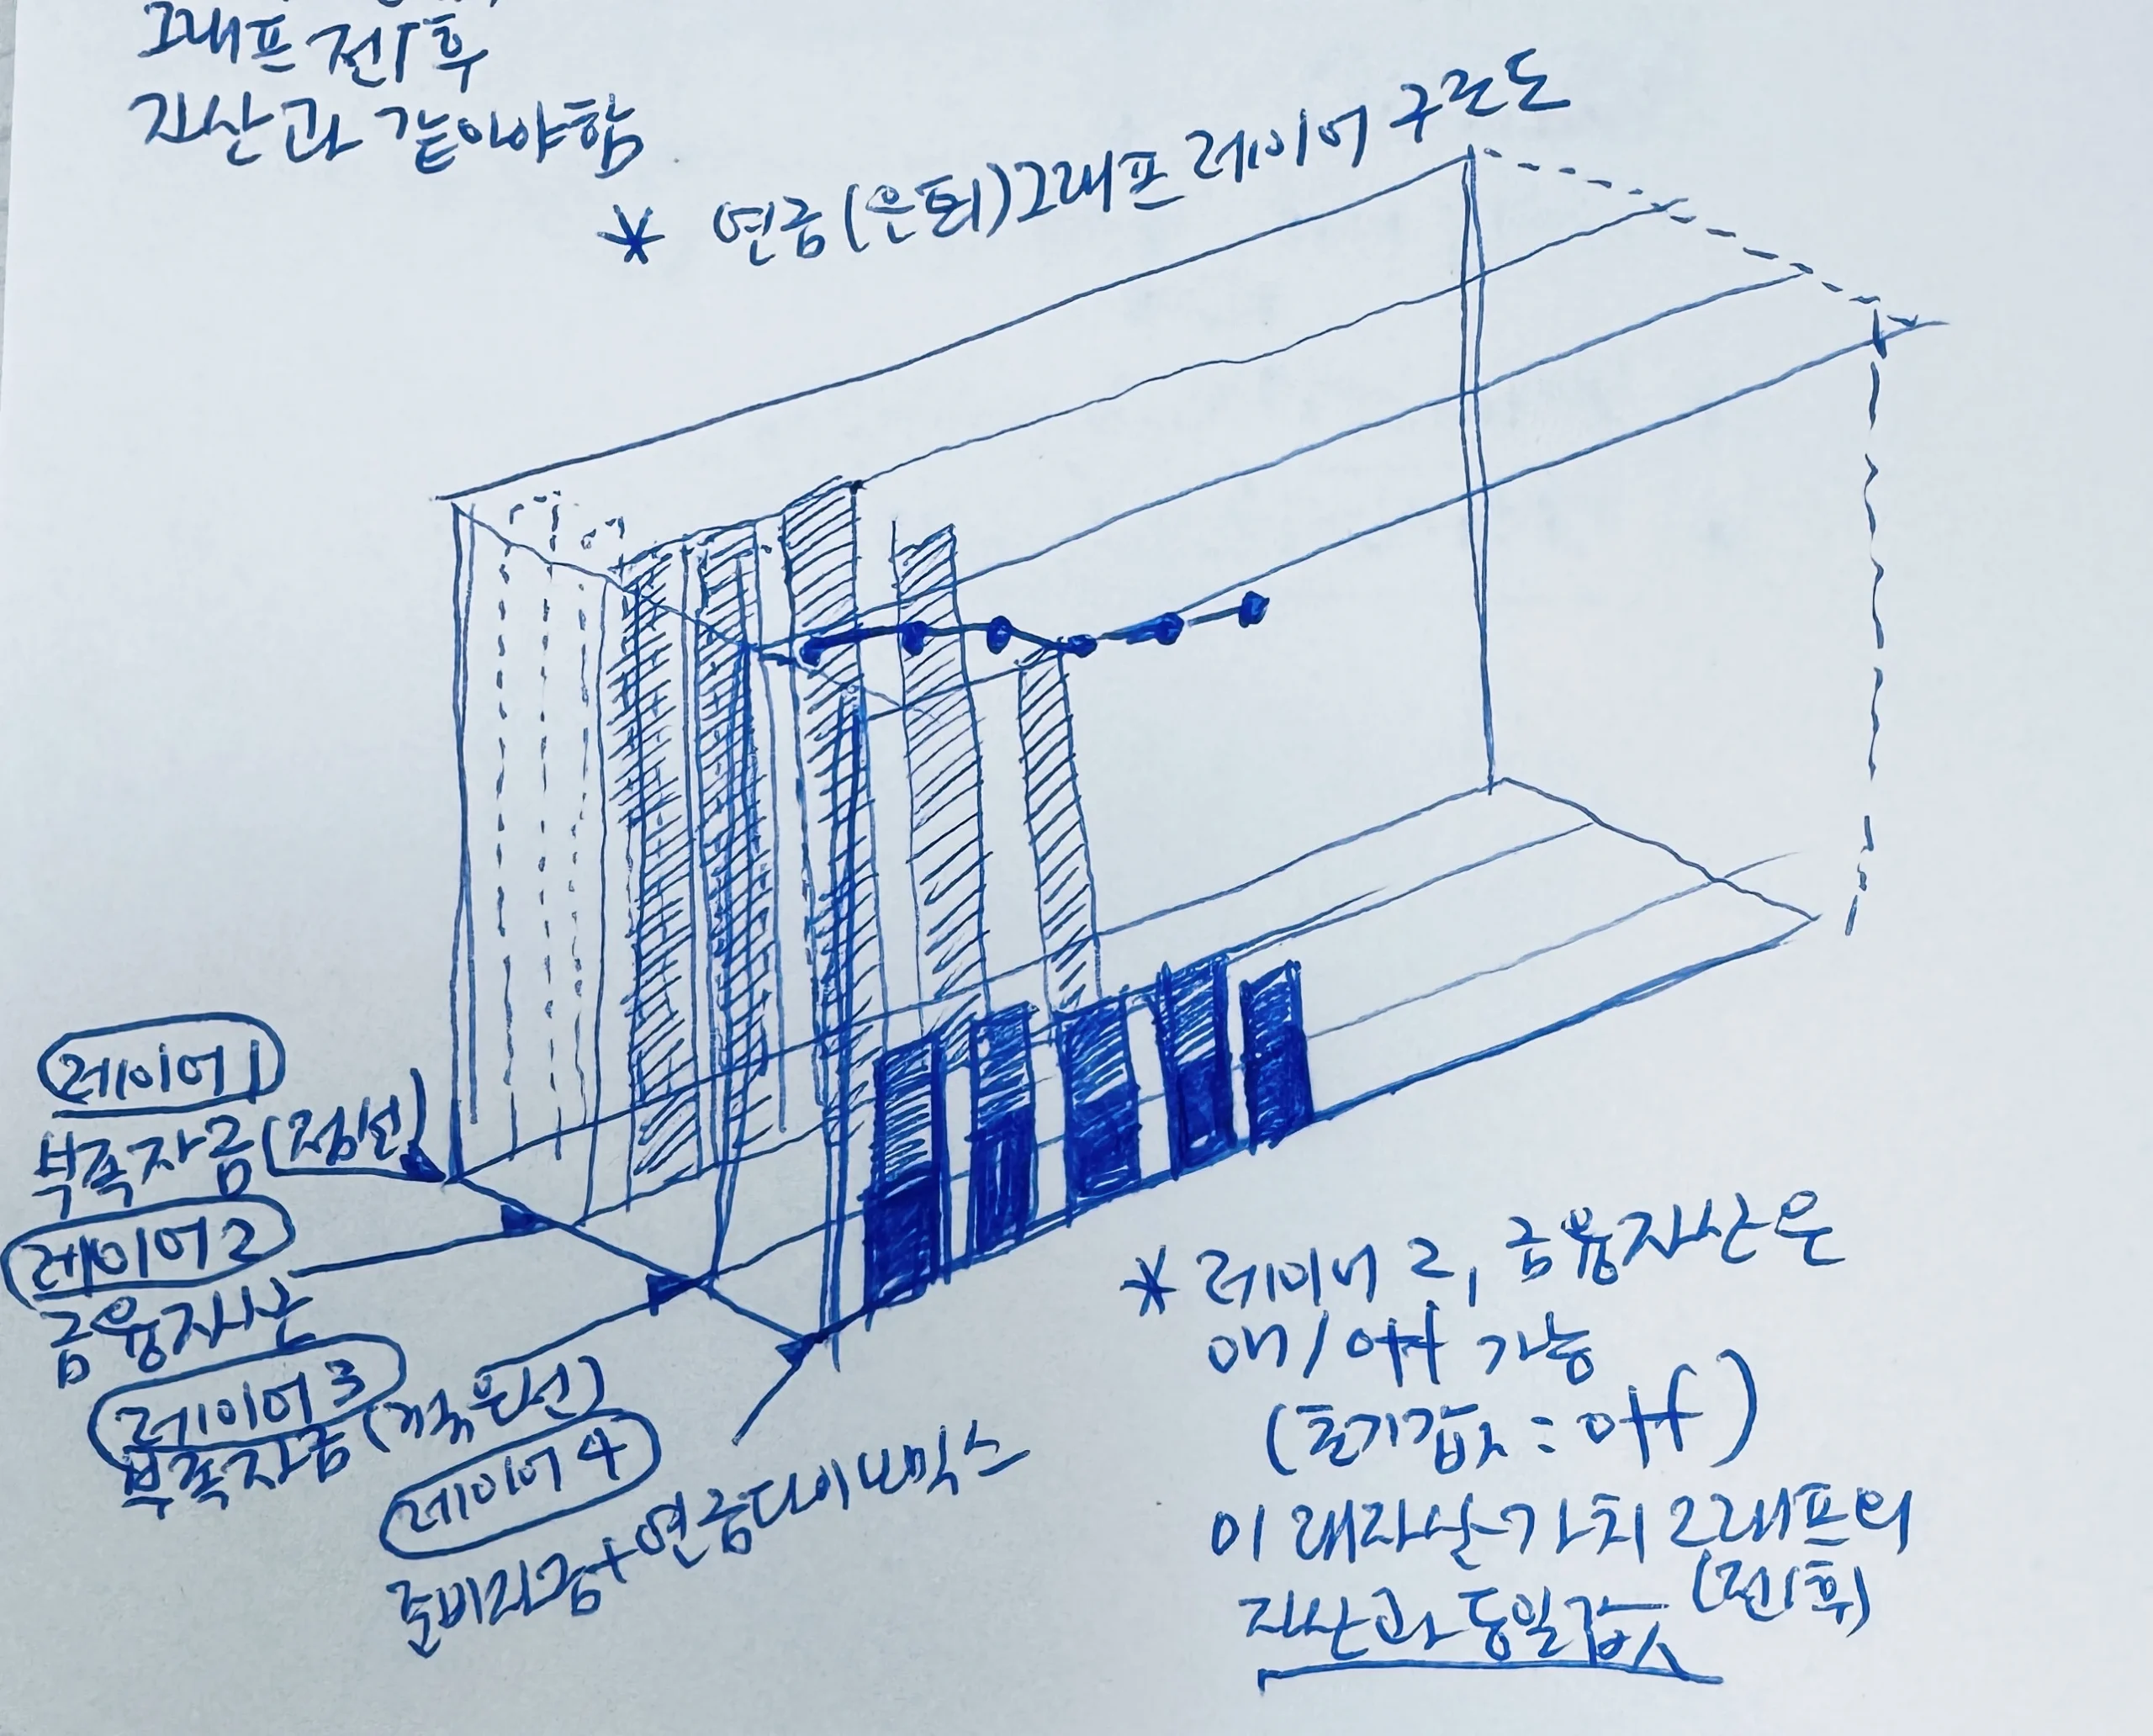 그래프 전/후
자산과 같아야함
* 연금(은퇴)그래프 레이어 구조도
레이어1
부족자금(점선)
레이어2
금융자산
레이어3
부족자금(꺾은선)
레이어4
준비자금+연금다이나믹스
* 레이어 2, 금융자산은
on/off 가능
(초기값 : off)
미래자산가치 그래프의
자산과 동일값 (전/후)